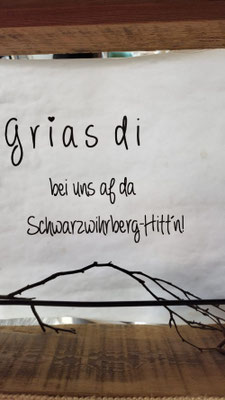 Grias di
bei uns af da
Schwarzwihrberg-Hitt'n!